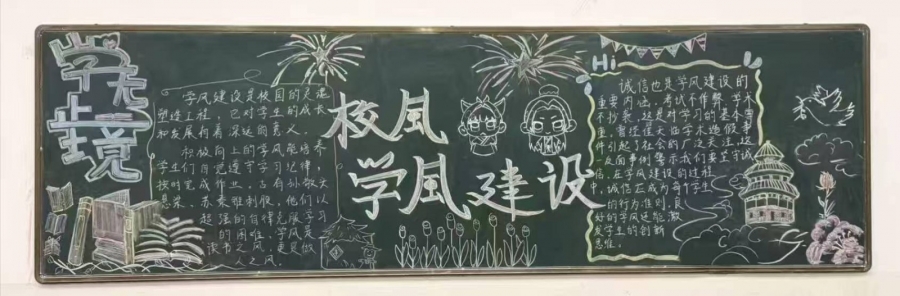 学无止境
学风建设是校园的灵魂
塑造工程，它对学生的成长
和发展有着深远的意义。
积极向上的学风能培养
学生们自觉遵守学习纪律，
按时完成作业。古有孙敬
悬梁、苏秦刺股，他们以
超强的自律克服学习
的困难，学风是
读书之风，更是做
人之风。
校风
学风建设
Hi
诚信也是学风建设的
重要内涵，考试不作弊，学术
不抄袭，这是对学习的基本尊
重。曾经
事
件引起了社会的广泛关注，这一
反面事例警示我们要坚守诚
信。在学风建设的过程
中，诚信应成为每个学生
的行为准则。良
好的学风还能激
发学生的创新
思维。